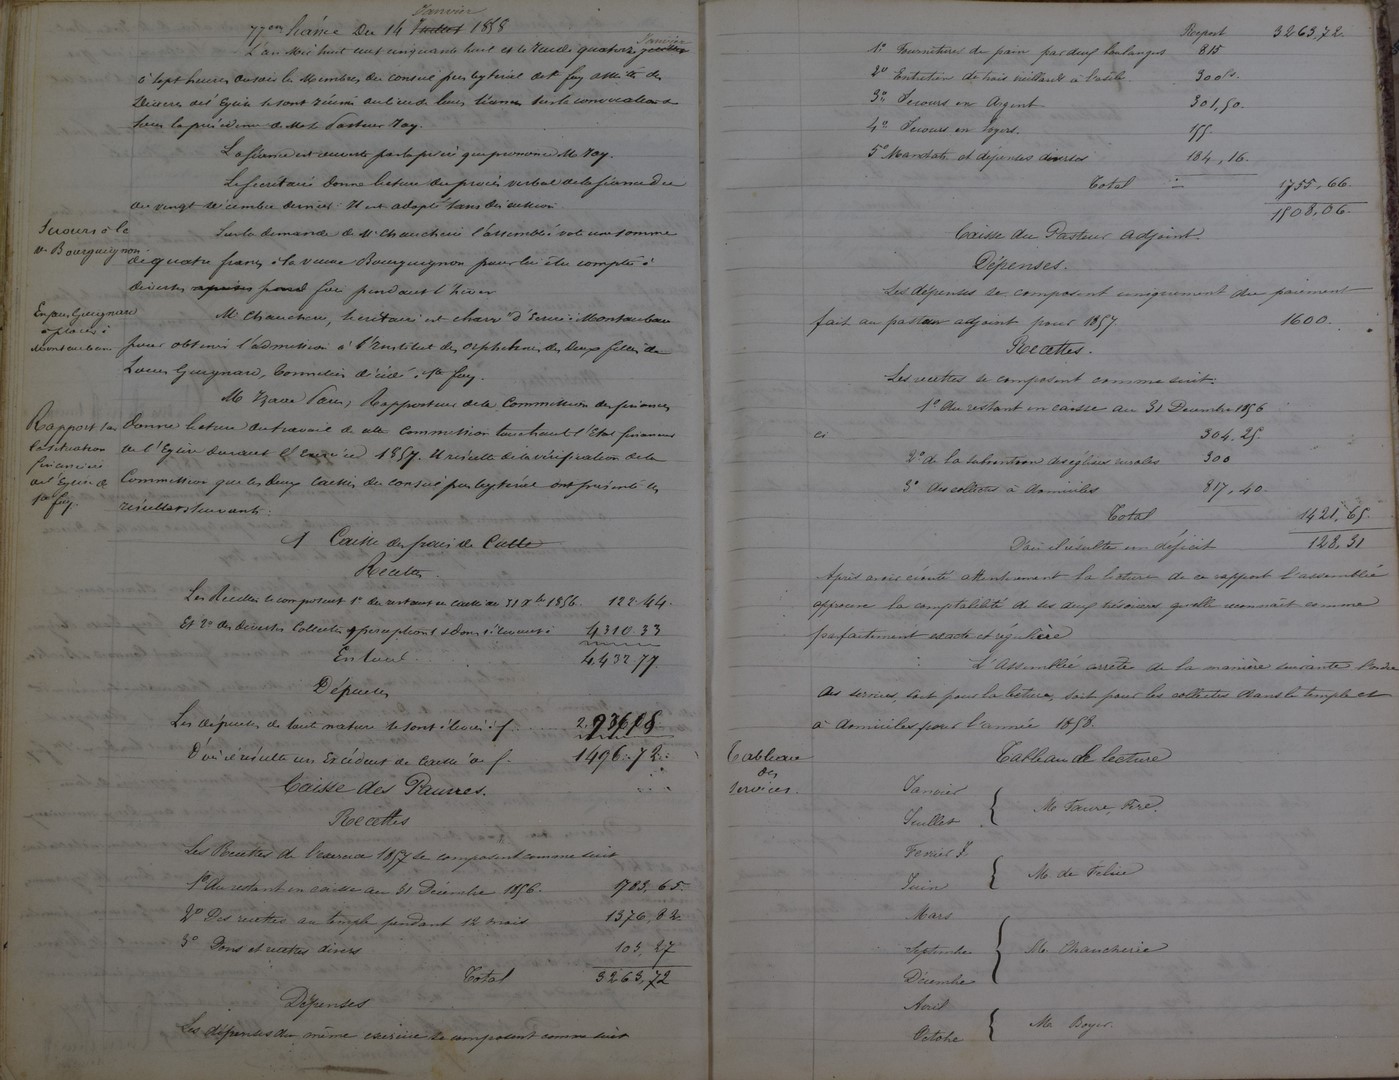 Janvier
77em Séance Du 14 Juillet 1858
Janvier
L'an Mil huit cent cinquante huit et le Jeudi quatorze juillet
à sept heures du soir les Membres du conseil presbyteral de Ste foy assistés des
Diacres de l'Eglise se sont réunis au lieu de leurs séances sur la convocation &
sous la présidence de Mr le Pasteur Jay.
La séance est ouverte par la prière que prononce Mr Jay.
Le Secrétaire donne lecture du procès verbal de la séance du
du vingt décembre dernier. Il est adopté sans discussion
Secours à la
ve Bourguignon
Sur la demande de Mr Chaucherie l'assemblée vote une somme
de quatre francs à la veuve Bourguignon pour lui être comptée à
diverses fois pendant l'hiver
Enfans Guignard
à placer à
Montauban
Mr Chaucherie, secrétaire est chargé d'écrire à Montauban
pour obtenir l'admission à l'Institut des Orphelines des deux filles de
Louis Guignard, Tonnelier décédé à Ste foy.
Rapport sur
la situation
financière
de l'Eglise de
Ste foy.
Mr Rapporteur de la Commission des finances
donne lecture du travail de cette Commission touchant l'Etat financier
de l'Eglise durant l'exercice 1857. Il résulte de la vérification de la
Commission que les deux Caisses du conseil presbytéral ont présenté les
résultats suivants:
1 Caisse des frais de Culte
Recettes.
Les Recettes se composent 1o du restant en caisse au 31 Xbre 1856. 122.44.
Et 2o des diverses Collectes, perceptions & dons s'élevant à 4310.33
En total. 4432.77
Dépenses
Les dépenses de toute nature se sont élevées à f. 2.936,05
D'où il résulte un Excédent de Caisse de f. 1496.72.
Caisse des Pauvres.
Recettes
Les Recettes de l'exercice 1857 se composent comme suit
1o Du restant en caisse au 31 Décembre 1856. 1783,65
2o Des recettes au temple pendant 12 mois 1376,82.
3o Dons et recettes divers 103,27
Total 3263,72
Dépenses
Les dépenses du même exercice se composent comme suit
Report 3263,72.
1o Fourniture de pain par deux boulangers 815
2o Entretien de trois vieillards à l'asile 300fs.
3o Secours en Argent 301,50.
4o Secours en loyers. 155.
5o Mandats et dépenses diverses 184,16.
Total 1755,66.
1508,06.
Caisse du Pasteur adjoint.
Dépenses.
Les dépenses se composent uniquement du paiement
fait au pasteur adjoint pour 1857. 1600.
Recettes.
Les recettes se composent comme suit:
1o du restant en caisse au 31 Decembre 1856
ci 304.25
2o de la subvention des églises rurales 300
3o des collectes à domiciles 817,40.
Total 1421,65.
D'où il résulte un déficit 128,31
Après avoir écouté attentivement la lecture de ce rapport l'assemblée
approuve la comptabilité de ses deux trésoriers qu'elle reconnaît comme
parfaitement exacte et régulière
L'Assemblée arrête de la manière suivante l'ordre
des services, soit pour la lecture, soit pour les collectes dans le temple et
à domiciles pour l'année 1858.
Tableau
des
Services.
Tableau de lecture
Janvier
Juillet
Mr Faure, Père.
Fevrier
Juin
Mr de Filine
Mars
Septembre
Décembre
Mr Chaucherie
Avril
Octobre
Mr Boyer.